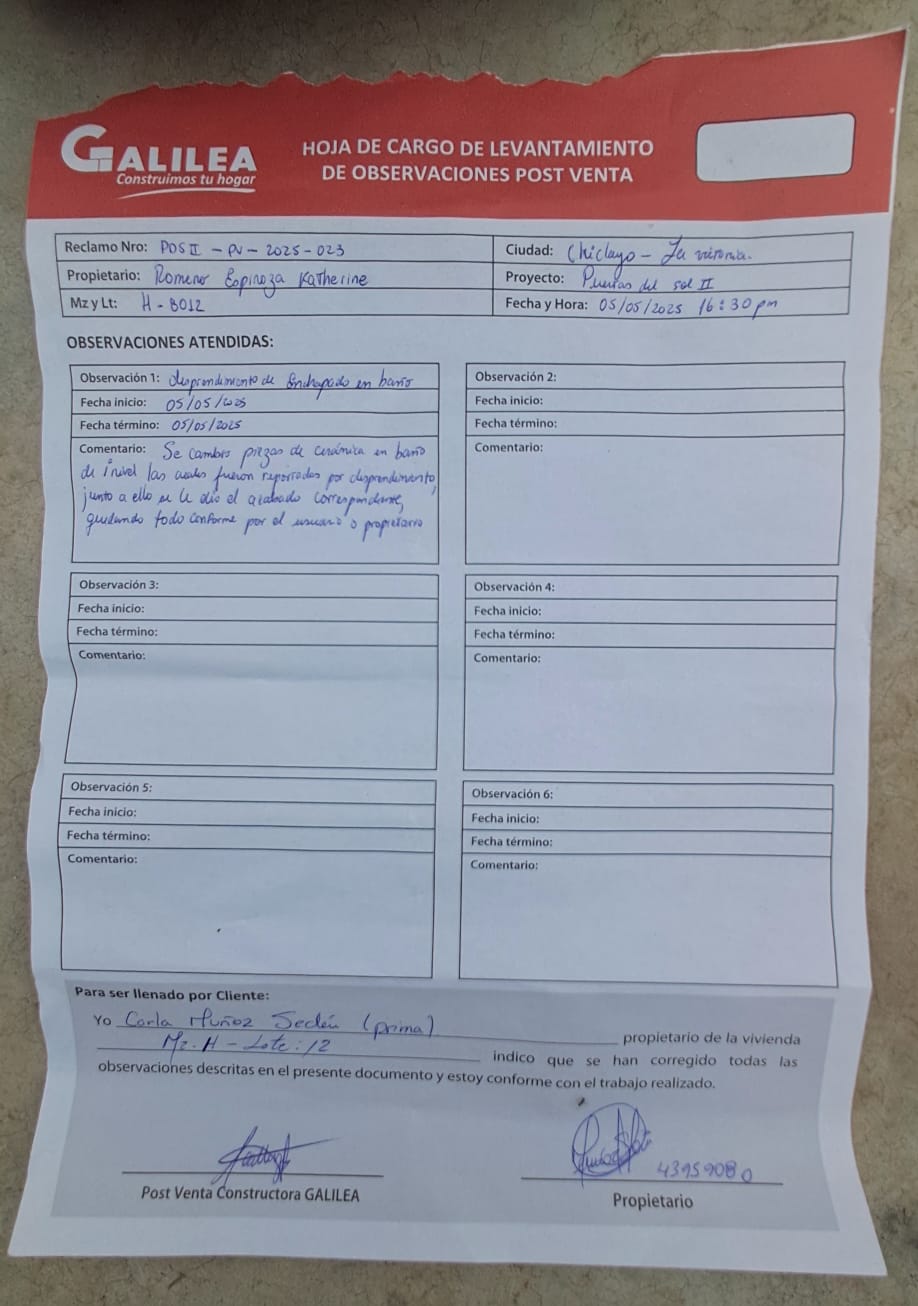 GALILEA
Construimos tu hogar
HOJA DE CARGO DE LEVANTAMIENTO
DE OBSERVACIONES POST VENTA
Reclamo Nro: POS II - PV - 2025 - 023
Ciudad: Chiclayo - La victoria.
Propietario: Romero Espinoza Katherine
Proyecto: Puertas del sol II
Mz y Lt: H - 8012
Fecha y Hora: 05/05/2025 16:30 pm
OBSERVACIONES ATENDIDAS:
Observación 1: desprendimiento de Enchapado en baño
Fecha inicio: 05/05/2025
Fecha término: 05/05/2025
Comentario: Se cambio piezas de cerámica en baño
de 1 nivel las cuales fueron reportadas por desprendimiento,
junto a ello se le dio el acabado correspondiente,
quedando todo conforme por el usuario o propietario
Observación 2:
Fecha inicio:
Fecha término:
Comentario:
Observación 3:
Fecha inicio:
Fecha término:
Comentario:
Observación 4:
Fecha inicio:
Fecha término:
Comentario:
Observación 5:
Fecha inicio:
Fecha término:
Comentario:
Observación 6:
Fecha inicio:
Fecha término:
Comentario:
Para ser llenado por Cliente:
Yo Carla Muñoz Seclén (prima) propietario de la vivienda
Mz. H - Lote: 12 indico que se han corregido todas las
observaciones descritas en el presente documento y estoy conforme con el trabajo realizado.
43959080
Post Venta Constructora GALILEA
Propietario